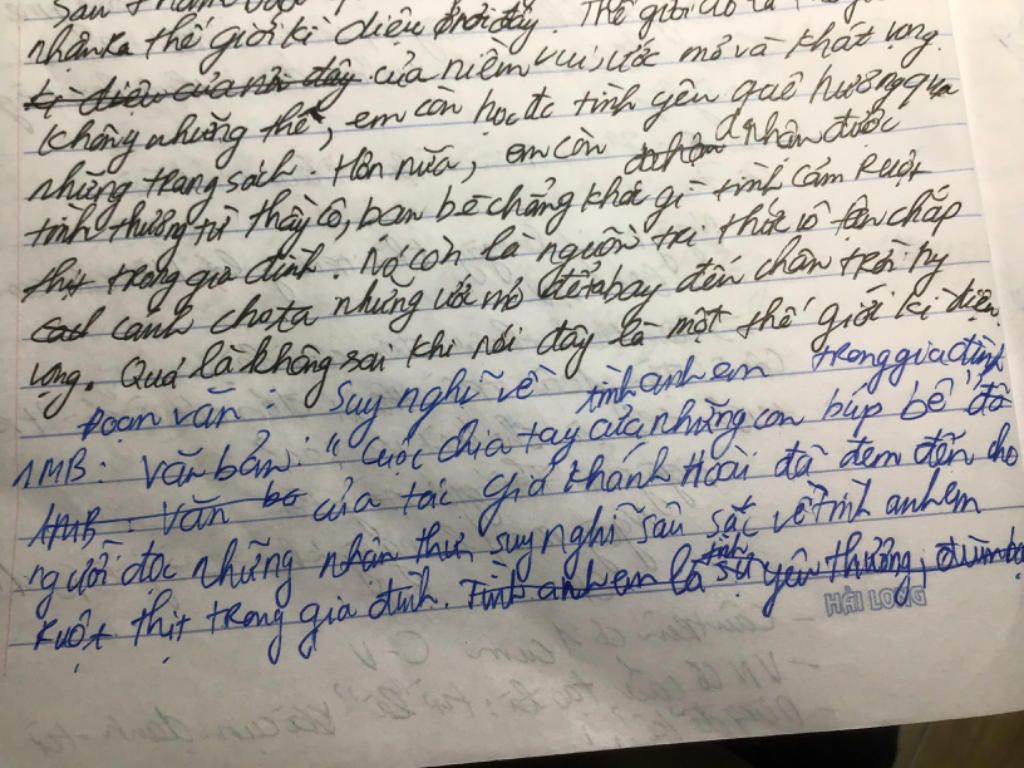 nhận ra thế giới kì diệu ở nơi đây. Thế giới đó là
kị diệu của nơi đây của niềm vui, ước mơ và khát vọng.
Không những thế, em còn học đc tình yêu quê hương qua
những trang sách. Hơn nữa, em còn nhận được
tình thương từ thầy cô, bạn bè chẳng khác gì tình cảm ruột
thịt trong gia đình. Nó còn là nguồn tri thức vô tận chắp
cánh cho ta những ước mơ để ta bay đến chân trời hy
vọng. Quả là không sai khi nói đây là một thế giới kì diệu.
Đoạn văn: Suy nghĩ về tình anh em trong gia đình
1MB: Văn bản: "Cuộc chia tay của những con búp bê" đã
1MB: Văn bả của tác giả Khánh Hoài đã đem đến cho
người đọc những nhân thư suy nghĩ sâu sắc về tình anh em
ruột thịt trong gia đình. Tình anh em là tình sự yêu thương, đùm bọ
HẢI LONG